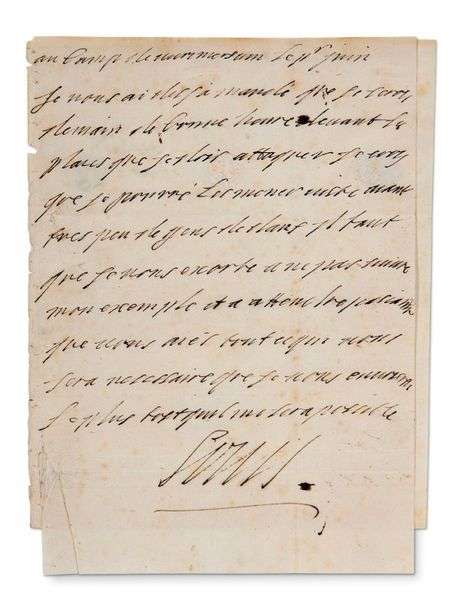 au Camp de le pr juin
Je vous ai desja mandé que je serois
demain de bonne heure devant la
place que je dois attaquer je croy
que je pourré les mener viste aiant
tres peu de gens dedans il faut
que je vous exorte a ne pas suivre
mon exemple et a attendre
que vous aiés tout ce qui vous
sera necessaire que je vous envoierai
le plus tost quil me sera possible
Louis.